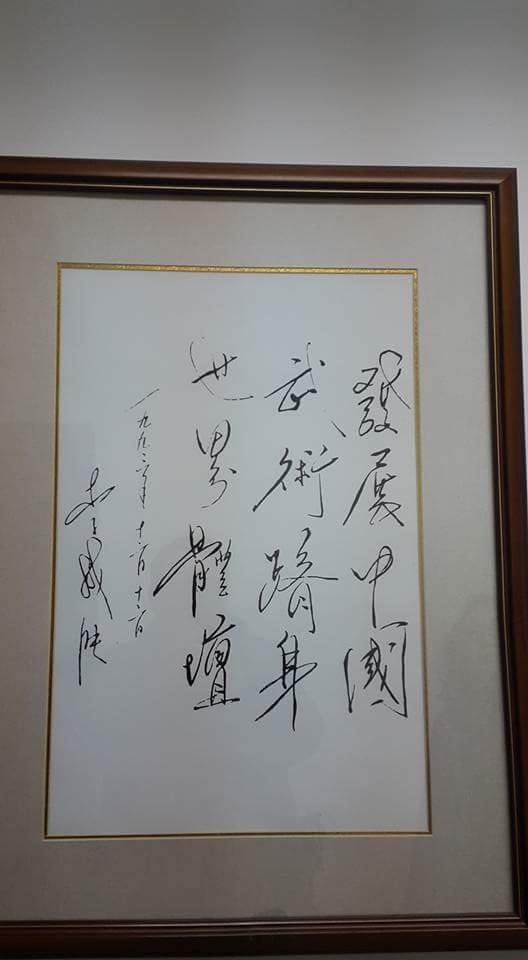 發展中國
武術躋身
世界體壇
一九九二年十二月十二日
李